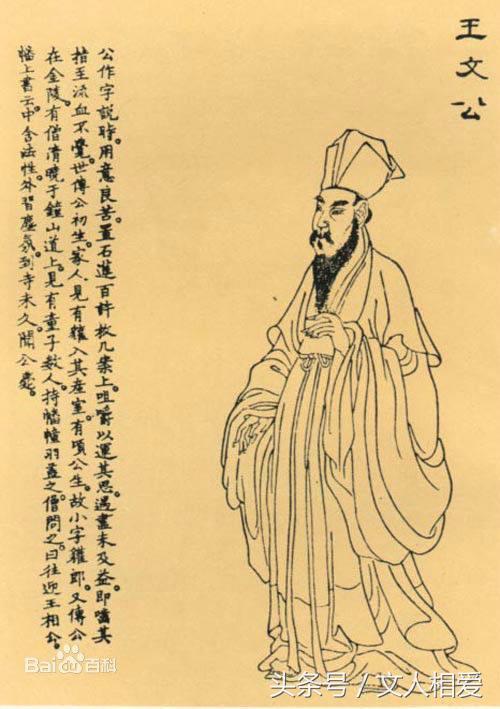 王文公
公作字説時。用意良苦。置石蓮百許枚几案上。咀嚼以運其思。遇盡未及益。即嚙其
指至流血不覺。世傳公初生。家人見有獾入其產室。有頃公生。故小字獾郎。又傳公
在金陵。有僧清曉于鐘山道上。見有童子數人。持幡幢羽蓋之。僧問之。曰往迎王相公。
幡上書云中含法性。外習塵氛。到寺未久聞公薨。
Bai百科
头条号/文人相爱